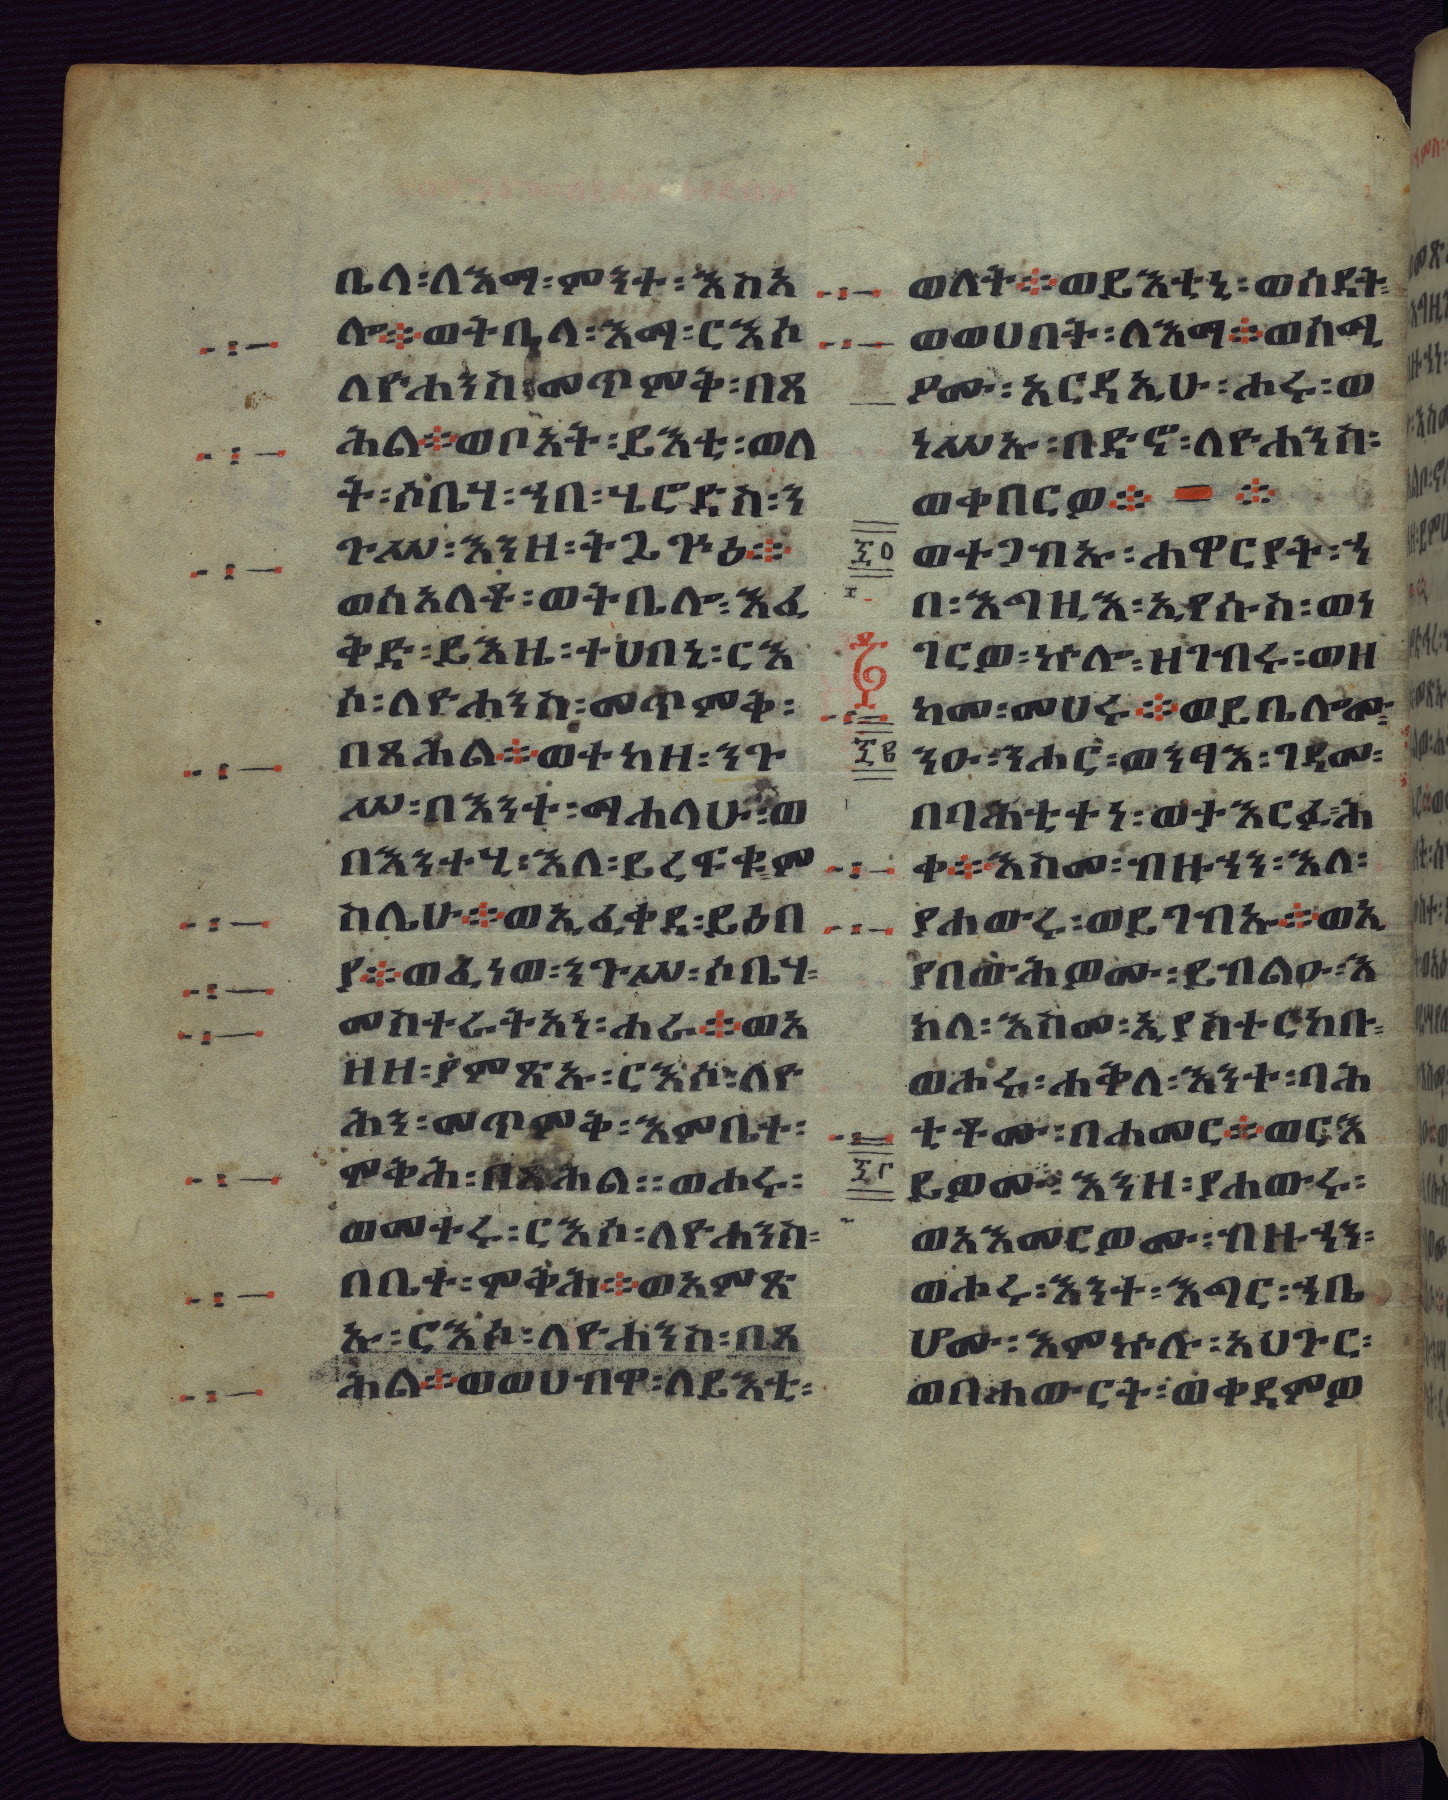 ቤላ፡ለእማ፡ምንተ፡እስእ
ሎ፨ወትቤላ፡እማ፡ርእሶ
ለዮሐንስ፡መጥምቅ፡በጻ
ሕል፨ወቦአት፡ይእቲ፡ወለ
ት፡ሶቤሃ፡ኀበ፡ሄሮድስ፡ን
ጉሥ፡እንዘ፡ትጔጕዕ፨
ወሰአለቶ፡ወትቤሎ፡እፈ
ቅድ፡ይእዜ፡ተሀበኒ፡ርእ
ሶ፡ለዮሐንስ፡መጥምቅ፡
በጻሕል፨ወተከዘ፡ንጉ
ሥ፡በእንተ፡ማሐላሁ፡ወ
በእንተሂ፡እለ፡ይረፍቁ፡ም
ስሌሁ፨ወኢፈቀደ፡ይዕበ
ያ፨ወፈነወ፡ንጉሥ፡ሶቤሃ፡
መስተራትአነ፡ሐራ፨ወአ
ዘዘ፡ያምጽኡ፡ርእሶ፡ለዮ
ሕን፡መጥምቅ፡እምቤተ፡
ሞቅሕ፡በጻሕል፡፡ወሐሩ፡
ወመተሩ፡ርእሶ፡ለዮሐንስ፡
በቤተ፡ሞቅሕ፨ወአምጽ
ኡ፡ርእሶ፡ለዮሐንስ፡በጻ
ሕል፨ወወሀብዋ፡ለይእቲ፡
ወለት፨ወይእቲኒ፡ወሰደት፡
ወወሀበት፡ለእማ፨ወሰሚ
ዖሙ፡አርዳኢሁ፡ሐሩ፡ወ
ነሥኡ፡በድኖ፡ለዮሐንስ፡
ወቀበርዎ፨ ፨
፷ዐ ወተጋብኡ፡ሐዋርያት፡ኀ
በ፡እግዚእ፡ኢየሱስ፡ወነ
ገርዎ፡ኵሎ፡ዘገብሩ፡ወዘ
ከመ፡መሀሩ፨ወይቤሎሙ፡
፷፪ ንዑ፡ንሐር፡ወንፃእ፡ገዳመ፡
በባሕቲተነ፡ወታእርፉ፡ሕ
ቀ፨እስመ፡ብዙኀን፡እለ፡
ያሐውሩ፡ወይገብኡ፨ወኢ
ያበውሕዎሙ፡ይብልዑ፡እ
ክለ፡እስመ፡ኢያስተርከቡ፡
ወሖሩ፡ሐቅለ፡እንተ፡ባሕ
ቲቶሙ፡በሐመር፨ወርእ
፷፫ ይዎሙ፡እንዘ፡ያሐውሩ፡
ወአእመርዎሙ፡ብዙኀን፡
ወሖሩ፡እንተ፡እግር፡ኀቤ
ሆሙ፡እምኵሉ፡አህጉር፡
ወበሐውርት፡ወቀደምዎ